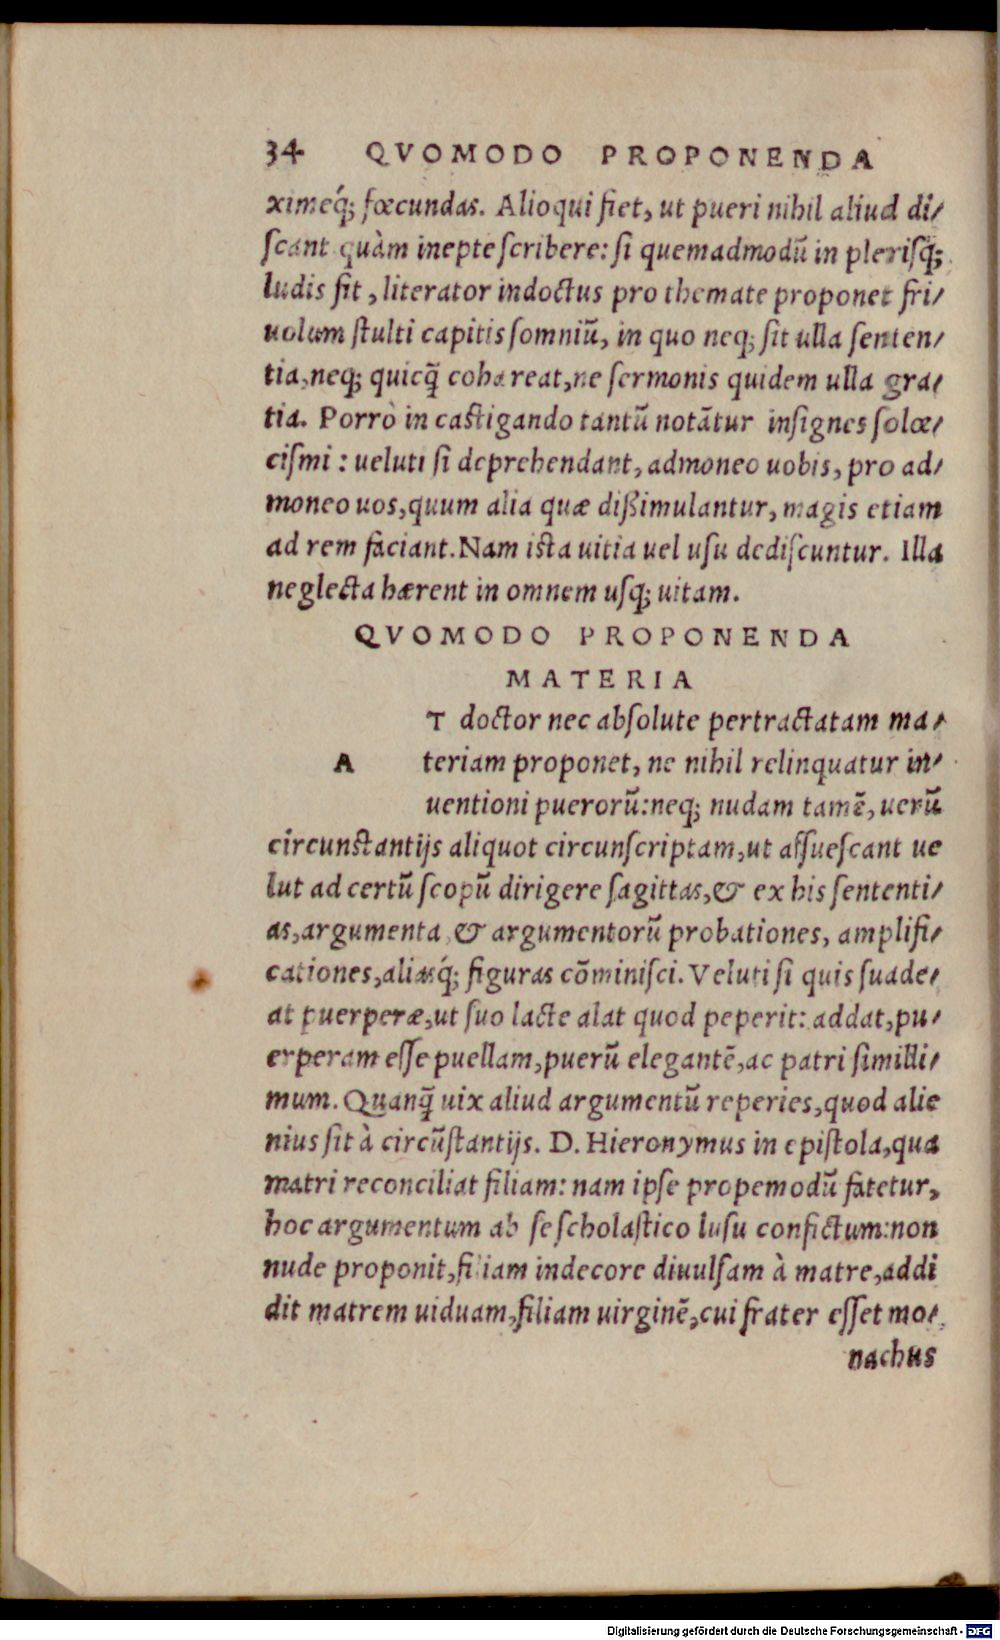 34 QVOMODO PROPONENDA
ximeq́; fœcundas. Alioqui fiet, ut pueri nihil aliud di/
ſcant quàm inepte ſcribere: ſi quemadmodũ in pleriſq́;
ludis fit, literator indoctus pro themate proponet fri/
uolum ſtulti capitis ſomniũ, in quo neq; ſit ulla ſenten/
tia, neq; quicq̃ cohæreat, ne ſermonis quidem ulla gra/
tia. Porrò in caſtigando tantũ notãtur inſignes ſolœ/
ciſmi: ueluti ſi deprehendant, admoneo uobis, pro ad/
moneo uos, quum alia quæ dißimulantur, magis etiam
ad rem faciant. Nam iſta uitia uel uſu dediſcuntur. Illa
neglecta hærent in omnem uſq; uitam.
QVOMODO PROPONENDA
MATERIA
T doctor nec abſolute pertractatam ma/
A teriam proponet, ne nihil relinquatur in/
uentioni puerorũ: neq; nudam tamẽ, uerũ
circunſtantijs aliquot circunſcriptam, ut aſſueſcant ue
lut ad certũ ſcopũ dirigere ſagittas, & ex his ſententi/
as, argumenta, & argumentorũ probationes, amplifi/
cationes, aliasq́; figuras cõminiſci. Veluti ſi quis ſuade/
at puerperæ, ut ſuo lacte alat quod peperit: addat, pu/
erperam eſſe puellam, puerũ elegantẽ, ac patri ſimilli/
mum. Quanq̃ uix aliud argumentũ reperies, quod alie
nius ſit à circũſtantijs. D. Hieronymus in epiſtola, qua
matri reconciliat filiam: nam ipſe propemodũ fatetur,
hoc argumentum ab ſe ſcholaſtico luſu confictum: non
nude proponit, filiam indecore diuulſam à matre, addi
dit matrem uiduam, filiam uirginẽ, cui frater eſſet mo/
nachus
Digitalisierung gefördert durch die Deutsche Forschungsgemeinschaft - DFG